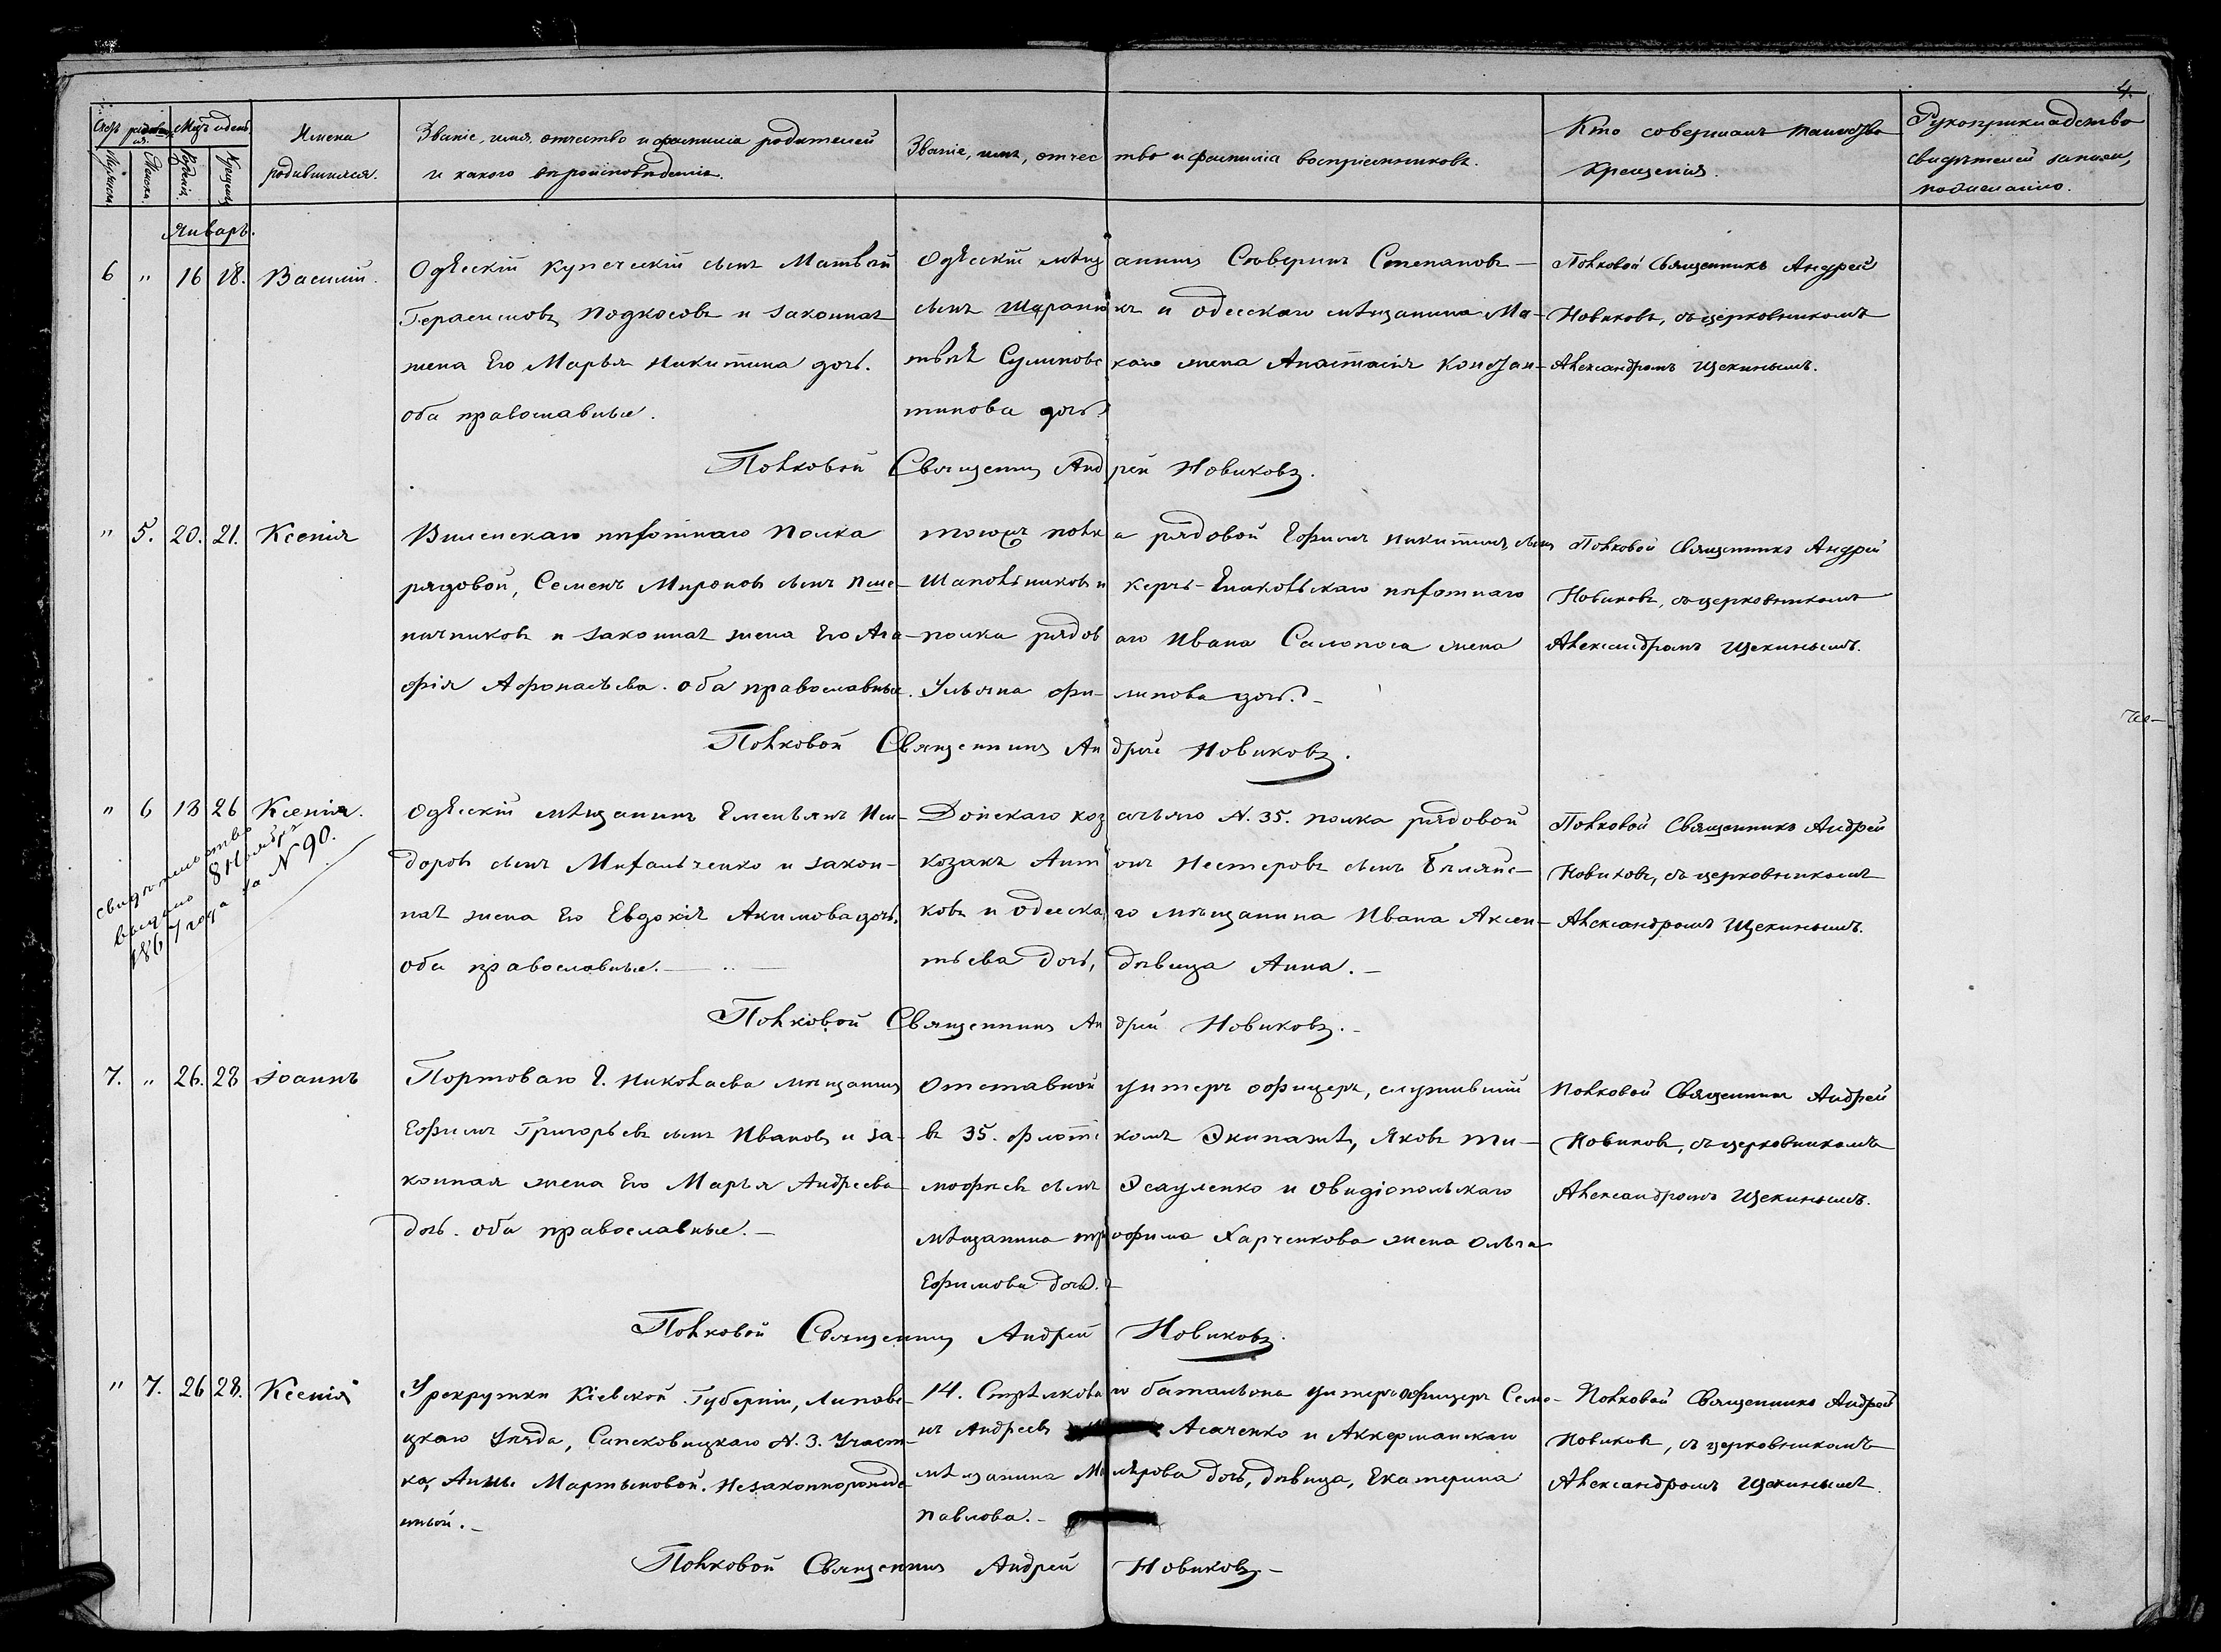 4.
Счетъ родивших-
ся.
Мѣц. и день
Мужеска.
Женска.
Рожденія.
Крещенія.
Имена
родившихся.
Званіе, имя, отчество и фамилія родителей
и какого вѣроисповѣданія.
Званіе, имя, отчество и фамилія воспріемниковъ.
Кто совершалъ таинство
крещенія.
Рукоприкладство
свидѣтелей записи,
по желанію.
Январь.
6 " 16 18. Василій.
Одѣсскій купеческій сынъ Матвѣй
Герасимовъ Подкосовъ и законная
жена Его Марья Никитина дочь.
оба православные.
Одѣсскій мѣщанинъ Северинъ Степановъ —
сынъ Шаранюкъ и одесскаго мѣщанина Ма-
твѣя Сулиповскаго жена Анастасія Констан-
тинова дочь.
Полковой Священникъ Андрей
Новиковъ, съ церковникомъ
Александромъ Щекинымъ.
Полковой Священникъ Андрей Новиковъ.
" 5. 20. 21. Ксенія
Виленскаго пѣхотнаго полка
рядовой, Семенъ Мироновъ сынъ Пше-
ничниковъ и законная жена Его Ага-
фія Афонасьева. оба православные.
тогожъ полка рядовой Ефимъ Никитинъ сынъ
Шапошниковъ и Керчь-Ениковьскаго пѣхотнаго
полка рядоваго Ивана Салопоса жена
Ульяна Фи-липова дочь. —
Полковой Священникъ Андрей
Новиковъ, съ церковникомъ
Александромъ Щекинымъ.
Полковой Священникъ Андрей Новиковъ.
" 6 13 26 Ксенія.
свидѣтельство
выдано 8 Ноября
1867 года за N 90.
Одѣсскій мѣщанинъ Емельянъ Иси-
доровъ сынъ Михальченко и закон-
ная жена Его Евдокія Акимова дочь,
оба православные. —
Донскаго козачьяго N. 35. полка рядовой
козакъ Антонъ Нестеровъ сынъ Бѣлянс-
ковъ и Одесскаго мѣщанина Ивана Аксен-
тьева дочь, дѣвица Анна. —
Полковой Священникъ Андрей
Новиковъ, съ церковникомъ
Александромъ Щекинымъ.
Полковой Священникъ Андрей Новиковъ. —
7. " 26. 28 Іоаннъ
Портоваго Г. Николаева мѣщанинъ
Ефимъ Григорьевъ сынъ Ивановъ и за-
конная жена Его Марья Андреева
дочь. оба православные. —
Отставной унтеръ офицеръ, служившій
въ 35. флотскомъ Экипажѣ, Яковъ Ти-
мофѣевъ сынъ Эсауленко и Овидіопольскаго
мѣщанина Трофима Харченкова жена Ольга
Ефимова дочь. —
Полковой Священникъ Андрей
Новиковъ, съ церковникомъ
Александромъ Щекинымъ.
Полковой Священникъ Андрей Новиковъ.
" 7. 26 28. Ксенія
У рекрутки Кіевской Губерніи, Липове-
цкаго Уѣзда, Сипсковицкаго N. 3. Участ-
ка, Анны Мартыновой. Незаконнорожде-
нной. —
14. Стрѣлковаго баталіона унтеръ офицеръ Семе-
нъ Андреевъ Асаченко и Аккерманскаго
мѣщанина Молярова дочь, дѣвица, Екатерина
Павлова. —
Полковой Священникъ Андрей
Новиковъ, съ церковникомъ
Александромъ Щекинымъ.
Полковой Священникъ Андрей Новиковъ. —